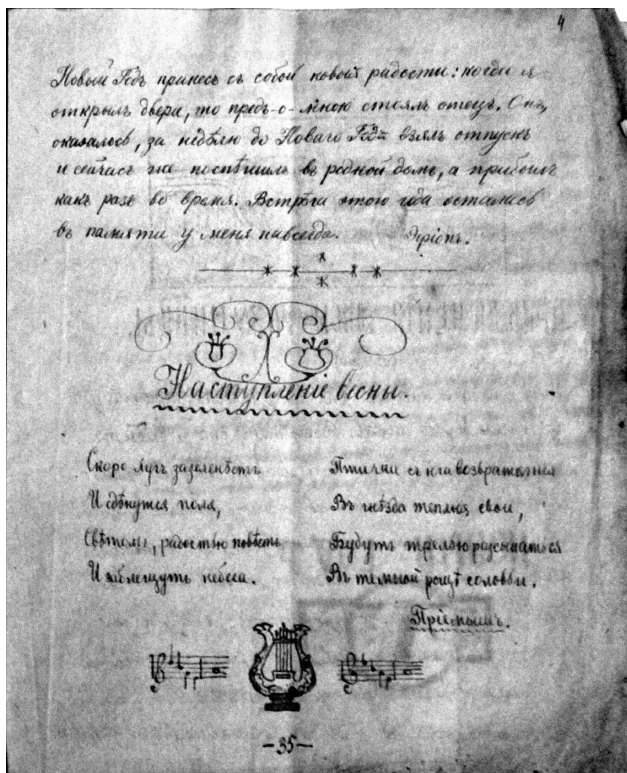 4
Новый Годъ принесъ съ собой новыя радости: когда я
открылъ двери, то предъ-о-мною стоялъ отецъ. Онъ,
оказалось, за недѣлю до Новаго Года взялъ отпускъ
и сейчасъ же поспѣшилъ въ родной домъ, а прибылъ
какъ разъ во время. Встрѣча этого года осталась
въ памяти у меня навсегда.
Наступленіе весны.
Скоро лугъ зазеленѣетъ
И одѣнутся поля,
Свѣтомъ, радостью повѣетъ
И заблещутъ небеса.
Птички съ юга возвратятся
Въ гнѣзда теплыя свои,
Будутъ трелью разсыпаться
Въ темной рощѣ соловьи.
Пріемышъ.
-35-